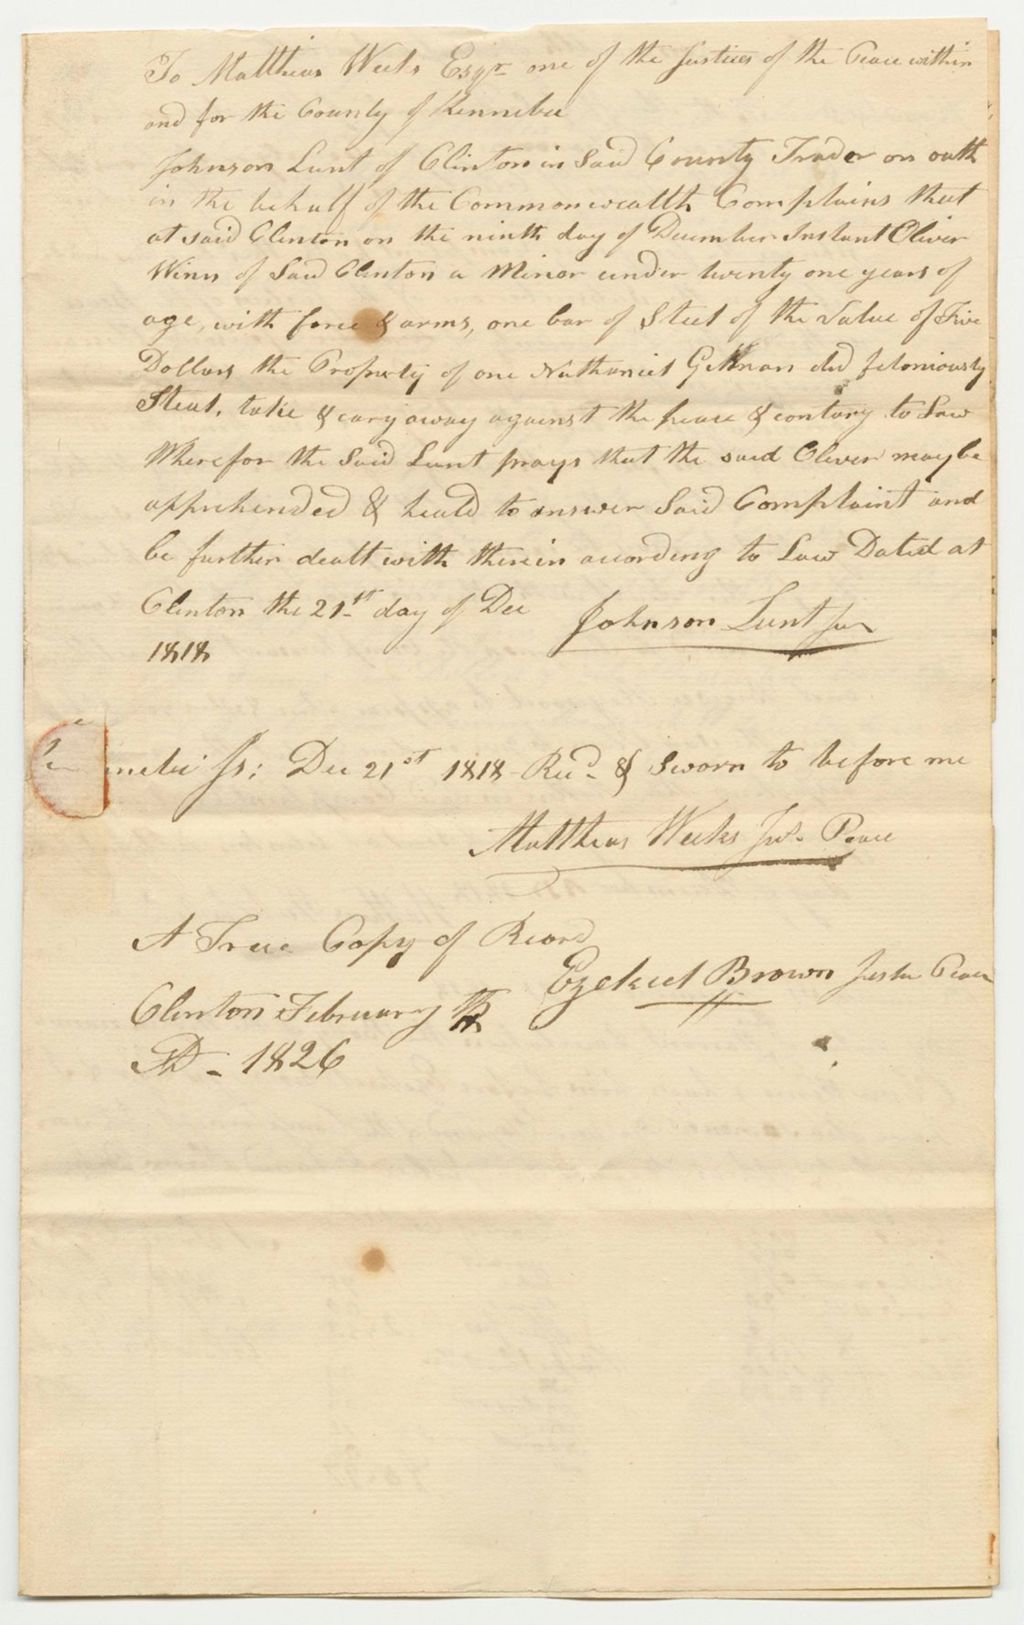 To Matthias Weeks Esqr one of the Justices of the Peace within
and for the County of Kennebec
Johnson Lunt of Clinton in Said County Trader on oath
in the behalf of the Commonwealth Complains that
at said Clinton on the ninth day of December Instant Oliver
Winn of Said Clinton a Minor under twenty one years of
age, with force & arms, one bar of Steel of the Value of Five
Dollars the Property of one Nathaniel Gilman did feloniously
Steal, take & cary away against the peace & contary to Law
Wherefor the Said Lunt prays that the said Oliver may be
apprehended & heald to answer Said Complaint and
be further dealt with therein acording to Law Dated at
Clinton the 21st day of Dec
1818
Johnson Lunt Jun
Kennebec Ss: Dec 21st 1818 Recd & Sworn to before me
Matthias Weeks Jus Peace
A True Copy of Record
Ezekiel Brown Justice Peace
Clinton February
AD - 1826